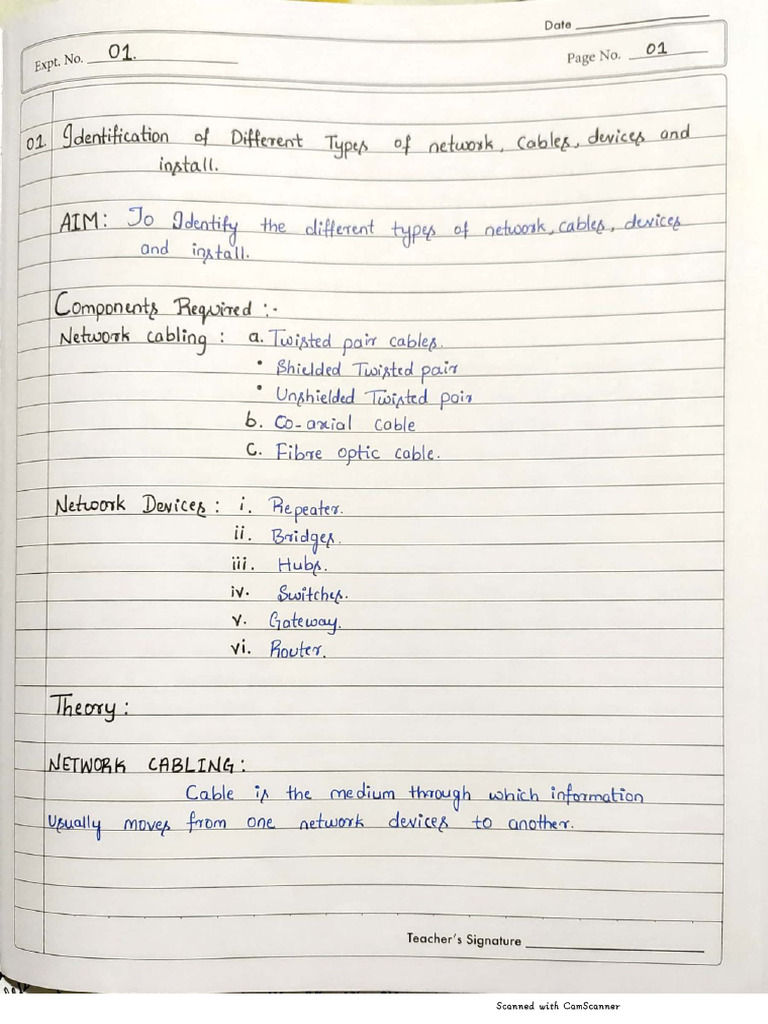 Date
Expt. No. 01.
Page No. 01
01. Identification of Different Types of network, Cables, devices and
install.
AIM: To Identify the different types of network, cables, devices
and install.
Components Required :-
Network cabling : a. Twisted pair cables.
• Shielded Twisted pair
• Unshielded Twisted pair
b. Co-axial cable
c. Fibre optic cable.
Network Devices : i. Repeater.
ii. Bridges.
iii. Hubs.
iv. Switches.
v. Gateway.
vi. Router.
Theory :
NETWORK CABLING :
Cable is the medium through which information
Usually moves from one network devices to another.
Teacher's Signature
Scanned with CamScanner